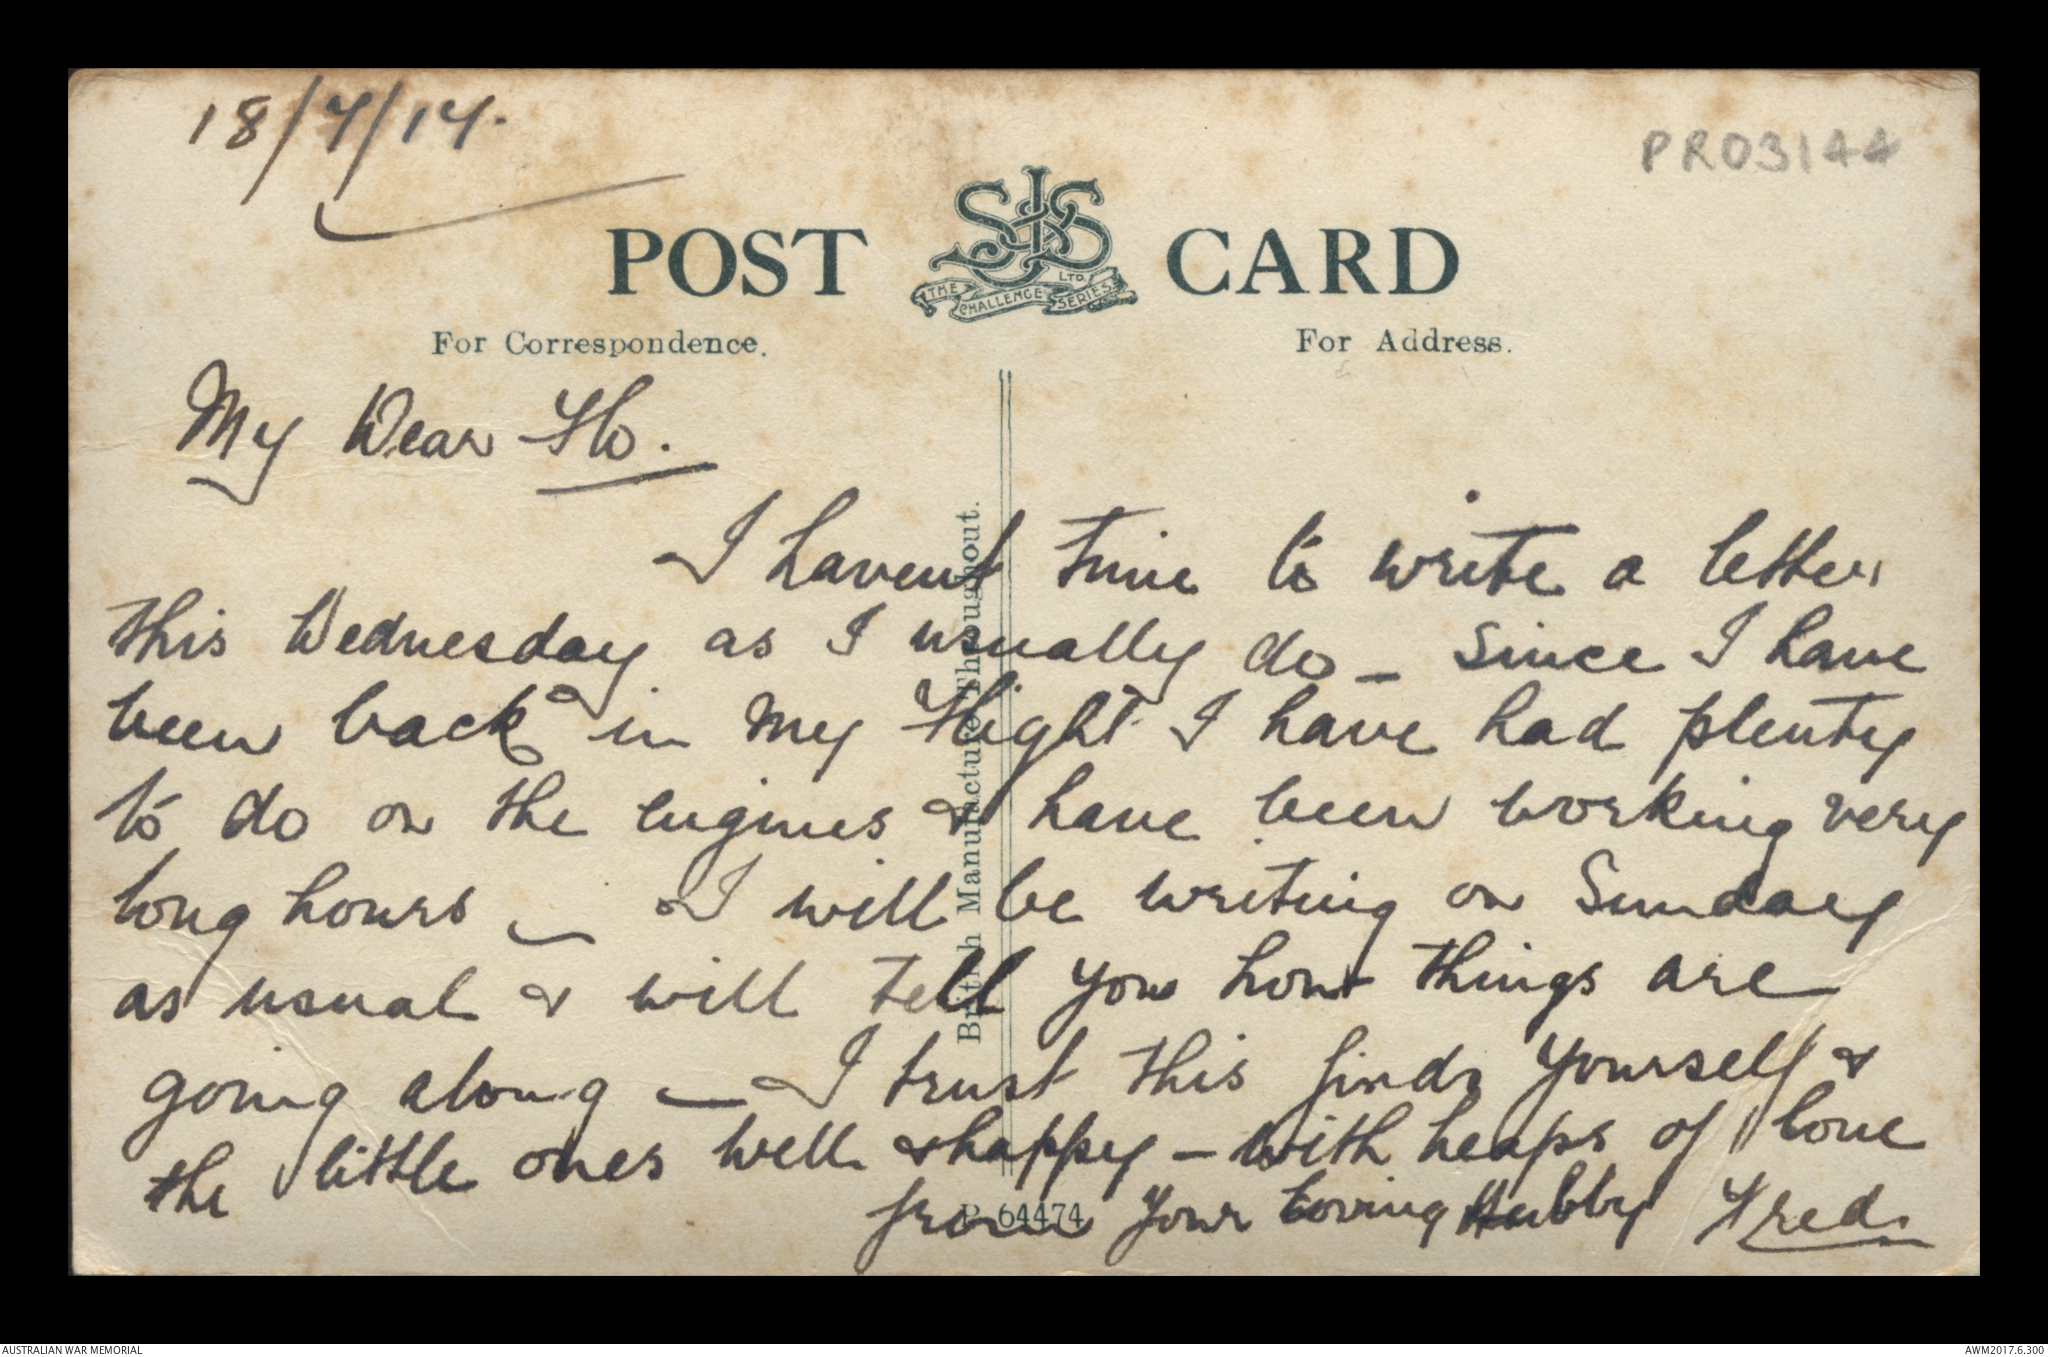 18/7/17.
PR03144
POST CARD
SJS LTD.
THE CHALLENGE SERIES
For Correspondence.
For Address.
My Dear Flo.
I havent time to write a letter
this Wednesday as I usually do _ Since I have
been back in my Flight I have had plenty
to do on the engines & have been working very
long hours _ I will be writing on Sunday
as usual & will tell you how things are
going along _ I trust this finds yourself &
the little ones well & happy - with heaps of love
from your loving Hubby Fred.
British Manufacture Throughout.
P 64474
AUSTRALIAN WAR MEMORIAL
AWM2017.6.300